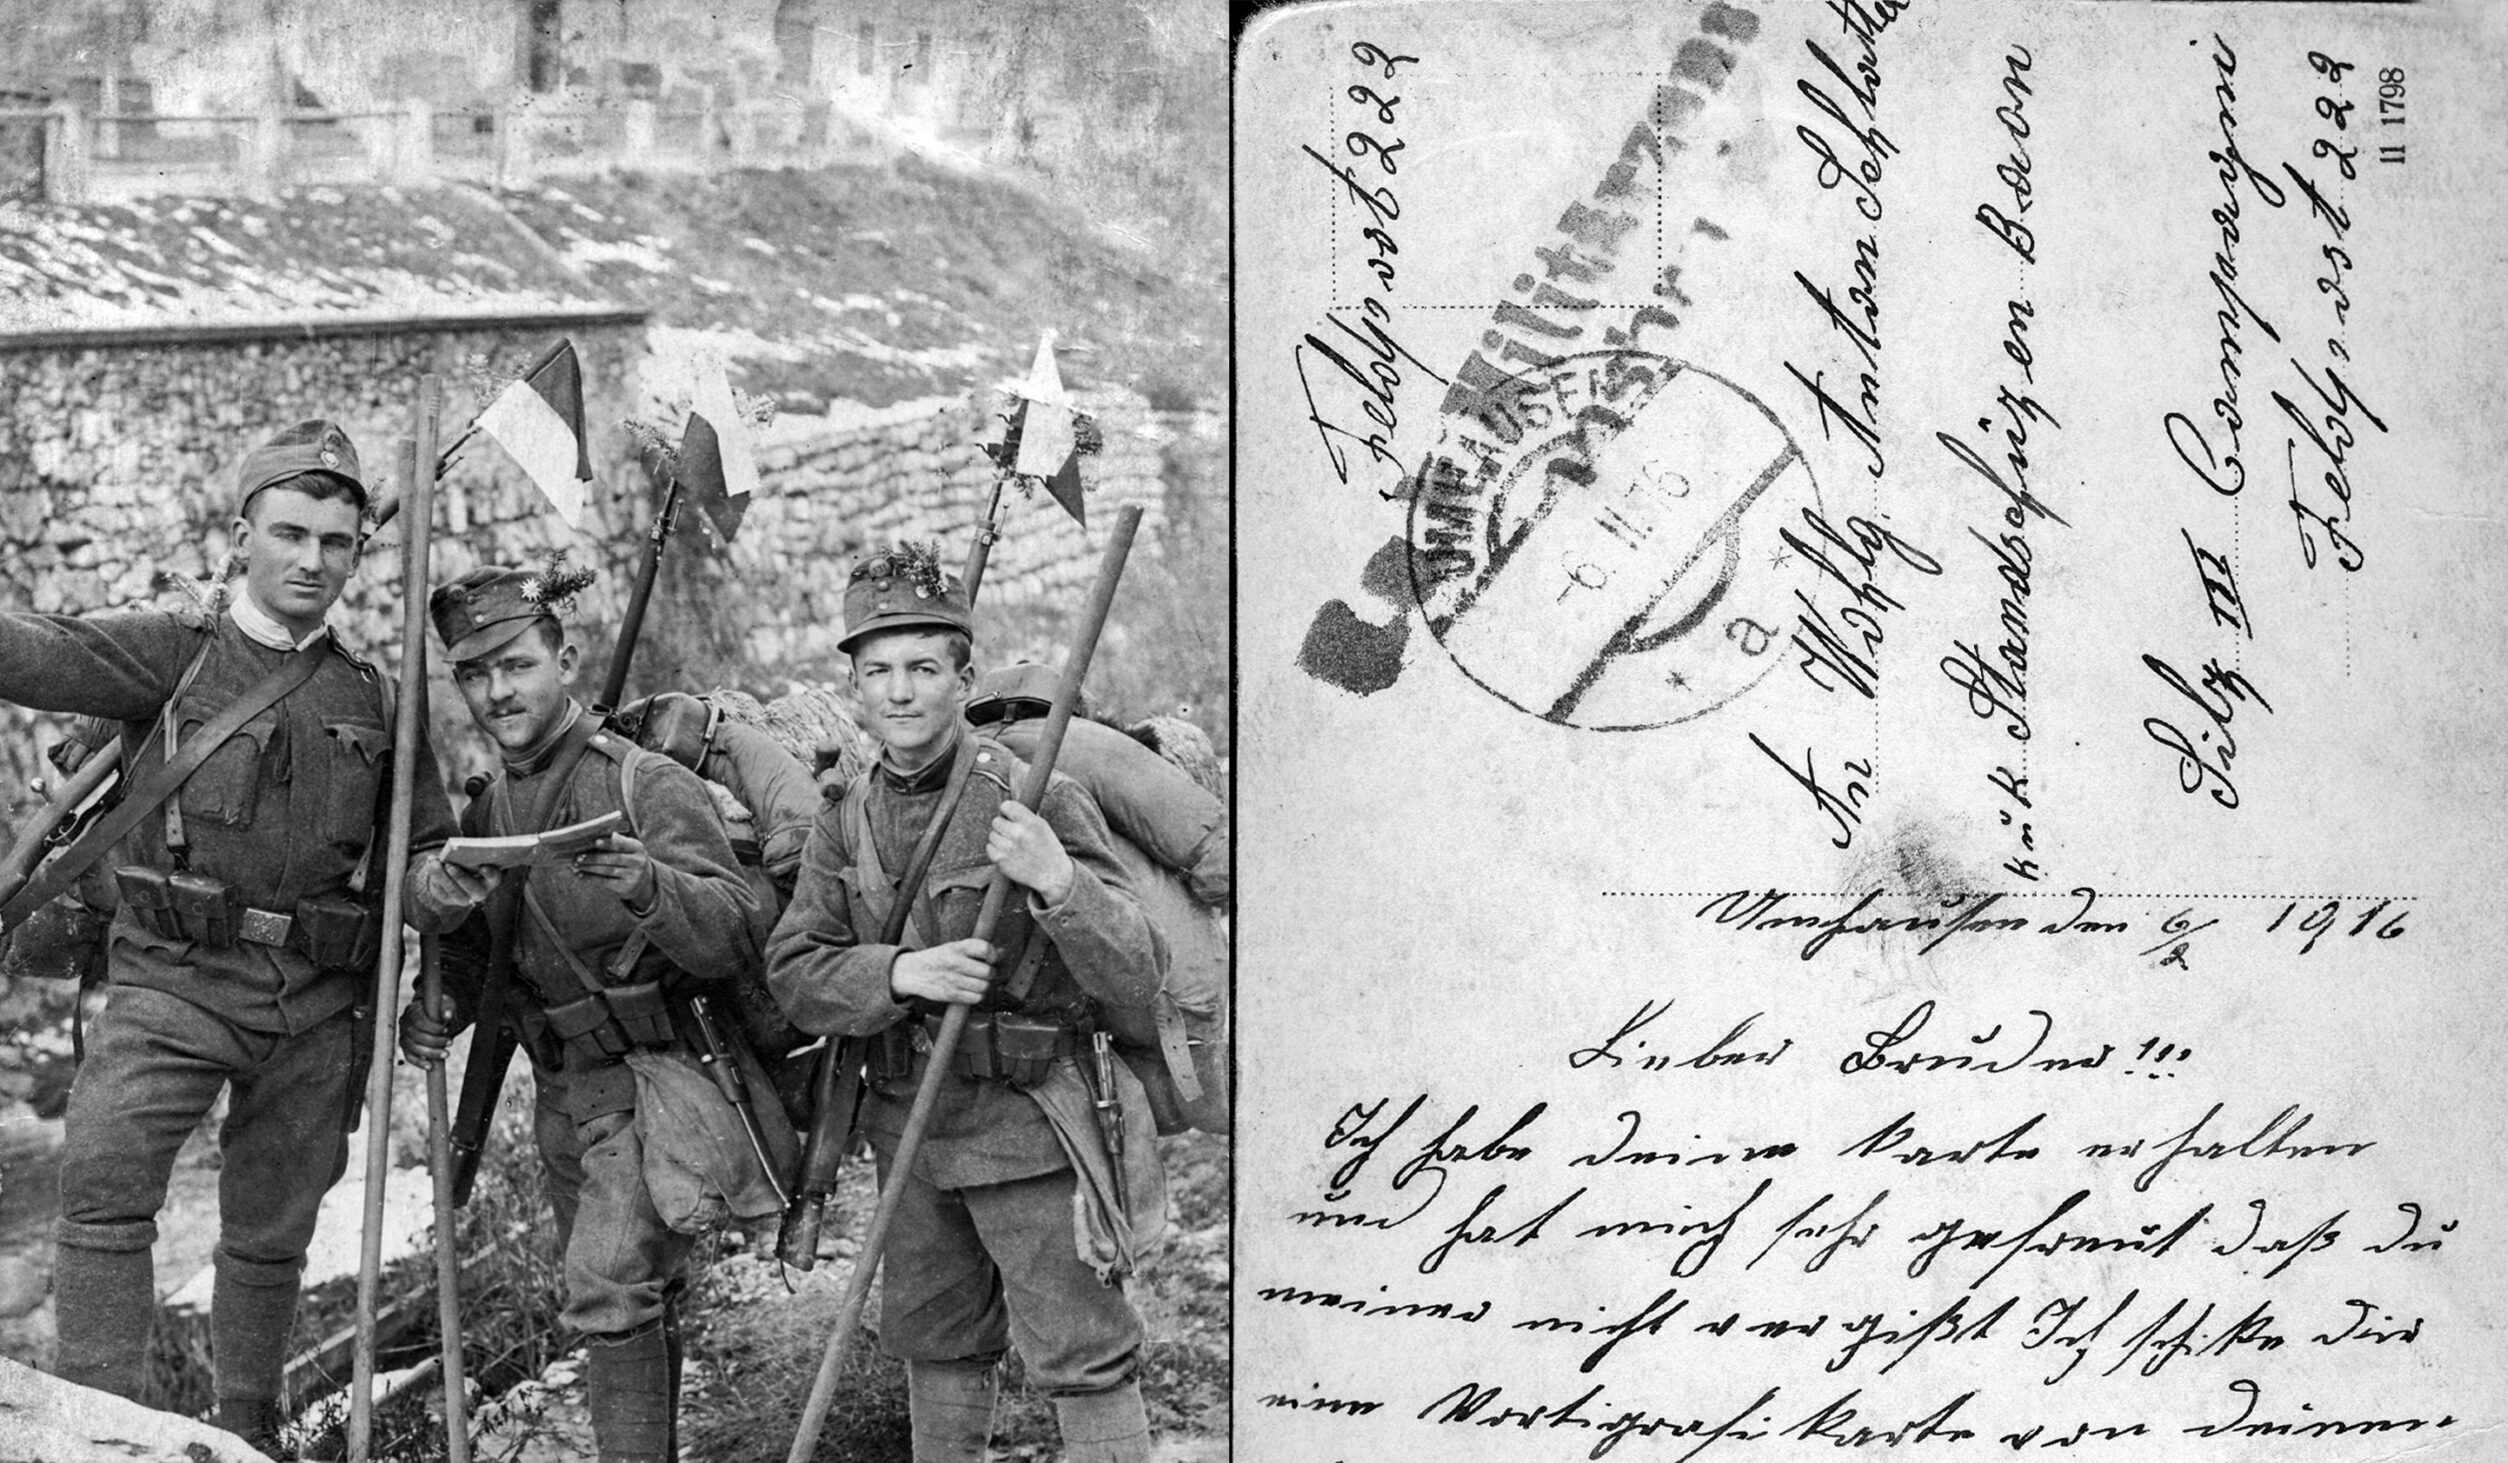 Feldpost 222
Militärzens
UMHAUSEN
-6. II. 16
* a *
An Wohlg. Anton Schlatter
k u k Standschützen Baon
Silz III Compangni
Feldpost 222
11 1798
Umhausen den 6/2 1916
Lieber Bruder!!!
Ich habe deine Karte erhalten
und hat mich sehr gefreut daß du
meiner nicht vergißt Ich schike dir
eine Vortigrafi Karte von deinen